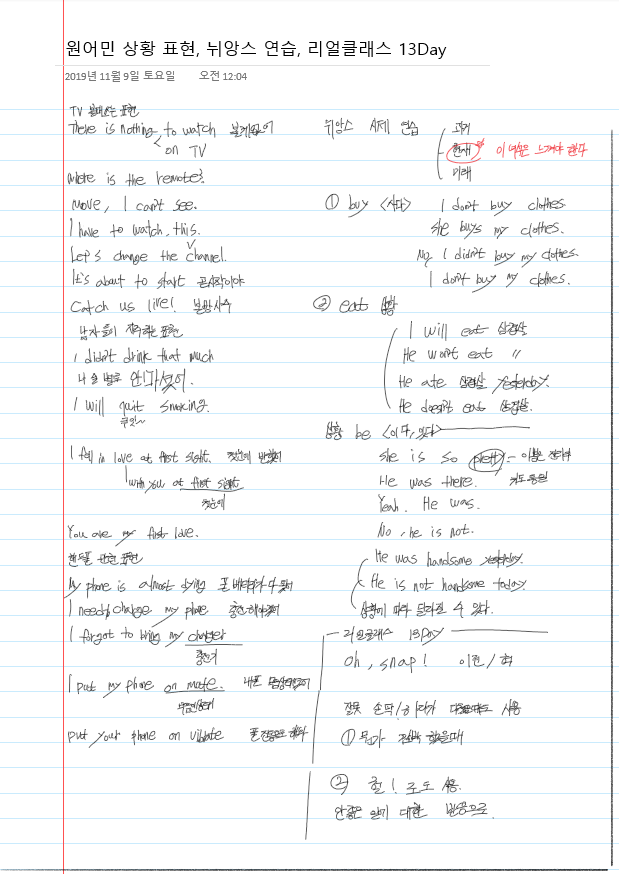 원어민 상황 표현, 뉘앙스 연습, 리얼클래스 13Day
2019년 11월 9일 토요일 오전 12:04
TV 표현
There is nothing to watch 볼게없어
on TV
where is the remote?
Move, I can't see.
I have to watch, this.
Let's change the channel.
It's about to start 곧시작이야
Catch us live! 본방사수
남자들이 표현
I didn't drink that much
나 술 별로 안마셨어.
I will quit smoking.
I fell in love at first sight. 첫눈에 반했어
with you at first sight
첫눈에
You are my first love.
핸드폰 관련 표현
My phone is almost dying 폰 배터리가 다 됐어
I need change my phone 충전해야겠어
I forgot to bring my charger
충전기
I put my phone on mute.
put your phone on vibrate
뉘앙스 시제 연습
과거
현재
미래
이 느껴야 한다
① buy <사다> I don't buy clothes.
she buys my clothes.
No, I didn't buy my clothes.
I don't buy my clothes.
② eat 상황
I will eat 삼겹살
He won't eat 〃
He ate 삼겹살 yesterday.
He doesn't eat 삼겹살.
상황 be <이다, 있다>
she is so pretty
He was there.
Yeah. He was.
No, he is not.
He was handsome yesterday.
He is not handsome today.
상황에 따라 달라질 수 있다.
리얼클래스 13Day
Oh, snap!
잘못 사용
① 뭔가 했을때
② 헐! 로도 사용
안좋은 일에 대한 반응으로.